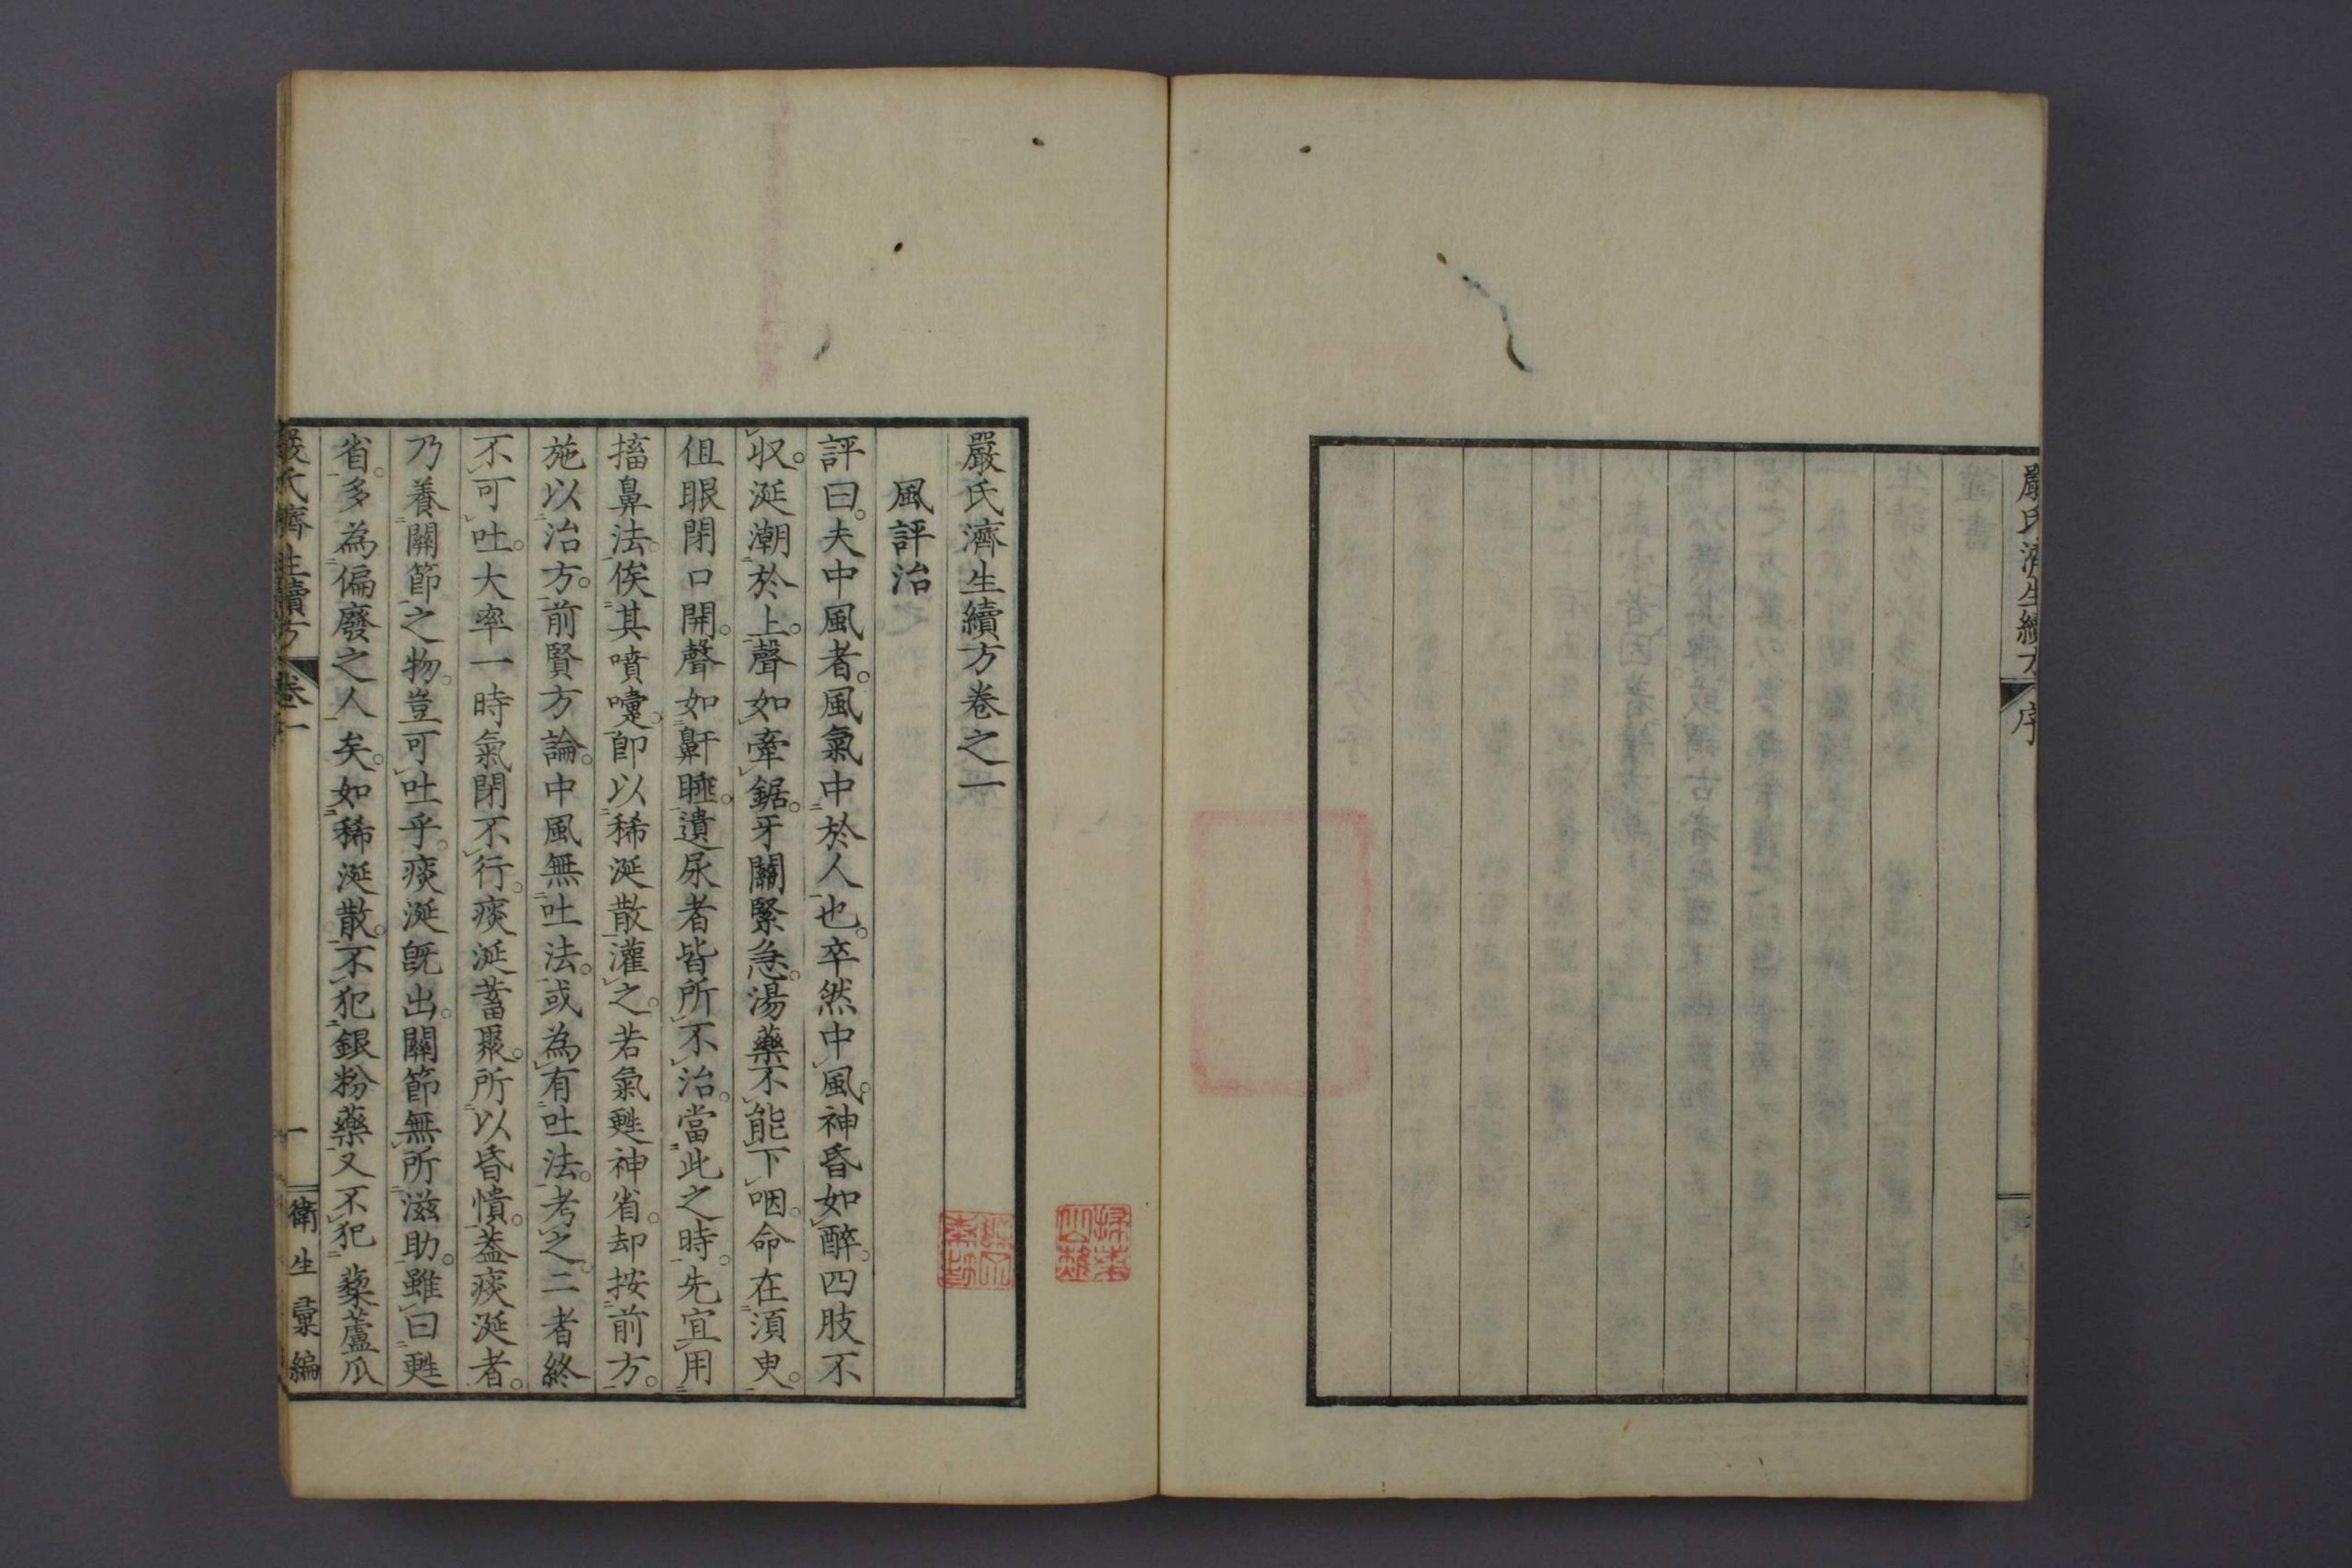 嚴氏濟生續方
序
嚴氏濟生續方卷之一
風評治
評曰。夫中風者。風氣中於人也。卒然中風。神昏如醉。四肢不
収。涎潮於上。聲如牽鋸。牙關緊急。湯藥不能下咽。命在須臾。
但眼閉口開。聲如鼾睡。遺尿者皆所不治。當此之時。先宜用
搐鼻法。俟其噴嚏。卽以稀涎散灌之。若氣甦神省。却按前方。
施以治方。前賢方論。中風無吐法。或為有吐法。考之。二者終
不可吐。大率一時氣閉不行。痰涎蓄聚。所以昏憒。蓋痰涎者。
乃養關節之物。豈可吐乎。痰涎旣出。關節無所滋助。雖曰甦
省。多為偏廢之人矣。如稀涎散。不犯銀粉藥。又不犯藜蘆瓜
嚴氏濟生續方 卷一 一 衛生彙編